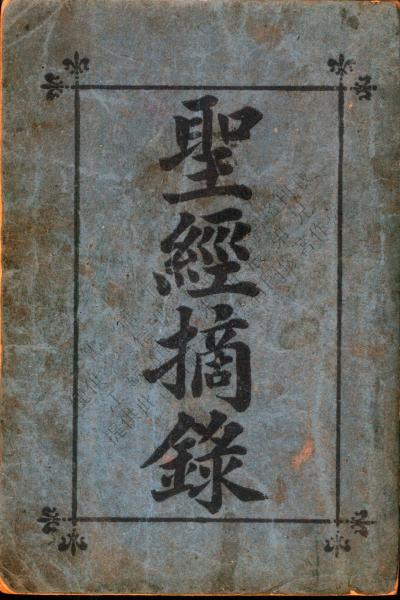 聖經摘錄